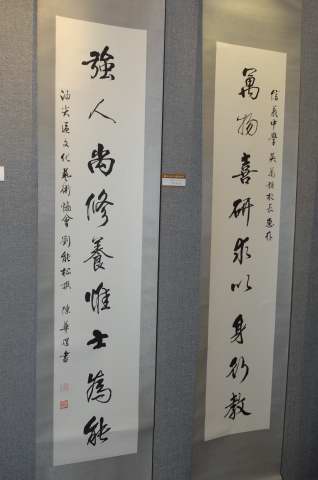 信義中學 吳萬 校長惠存
萬物喜研求以身行教
強人尚修養惟士為能
油尖區文化藝術協會劉能松撰 陳華 書